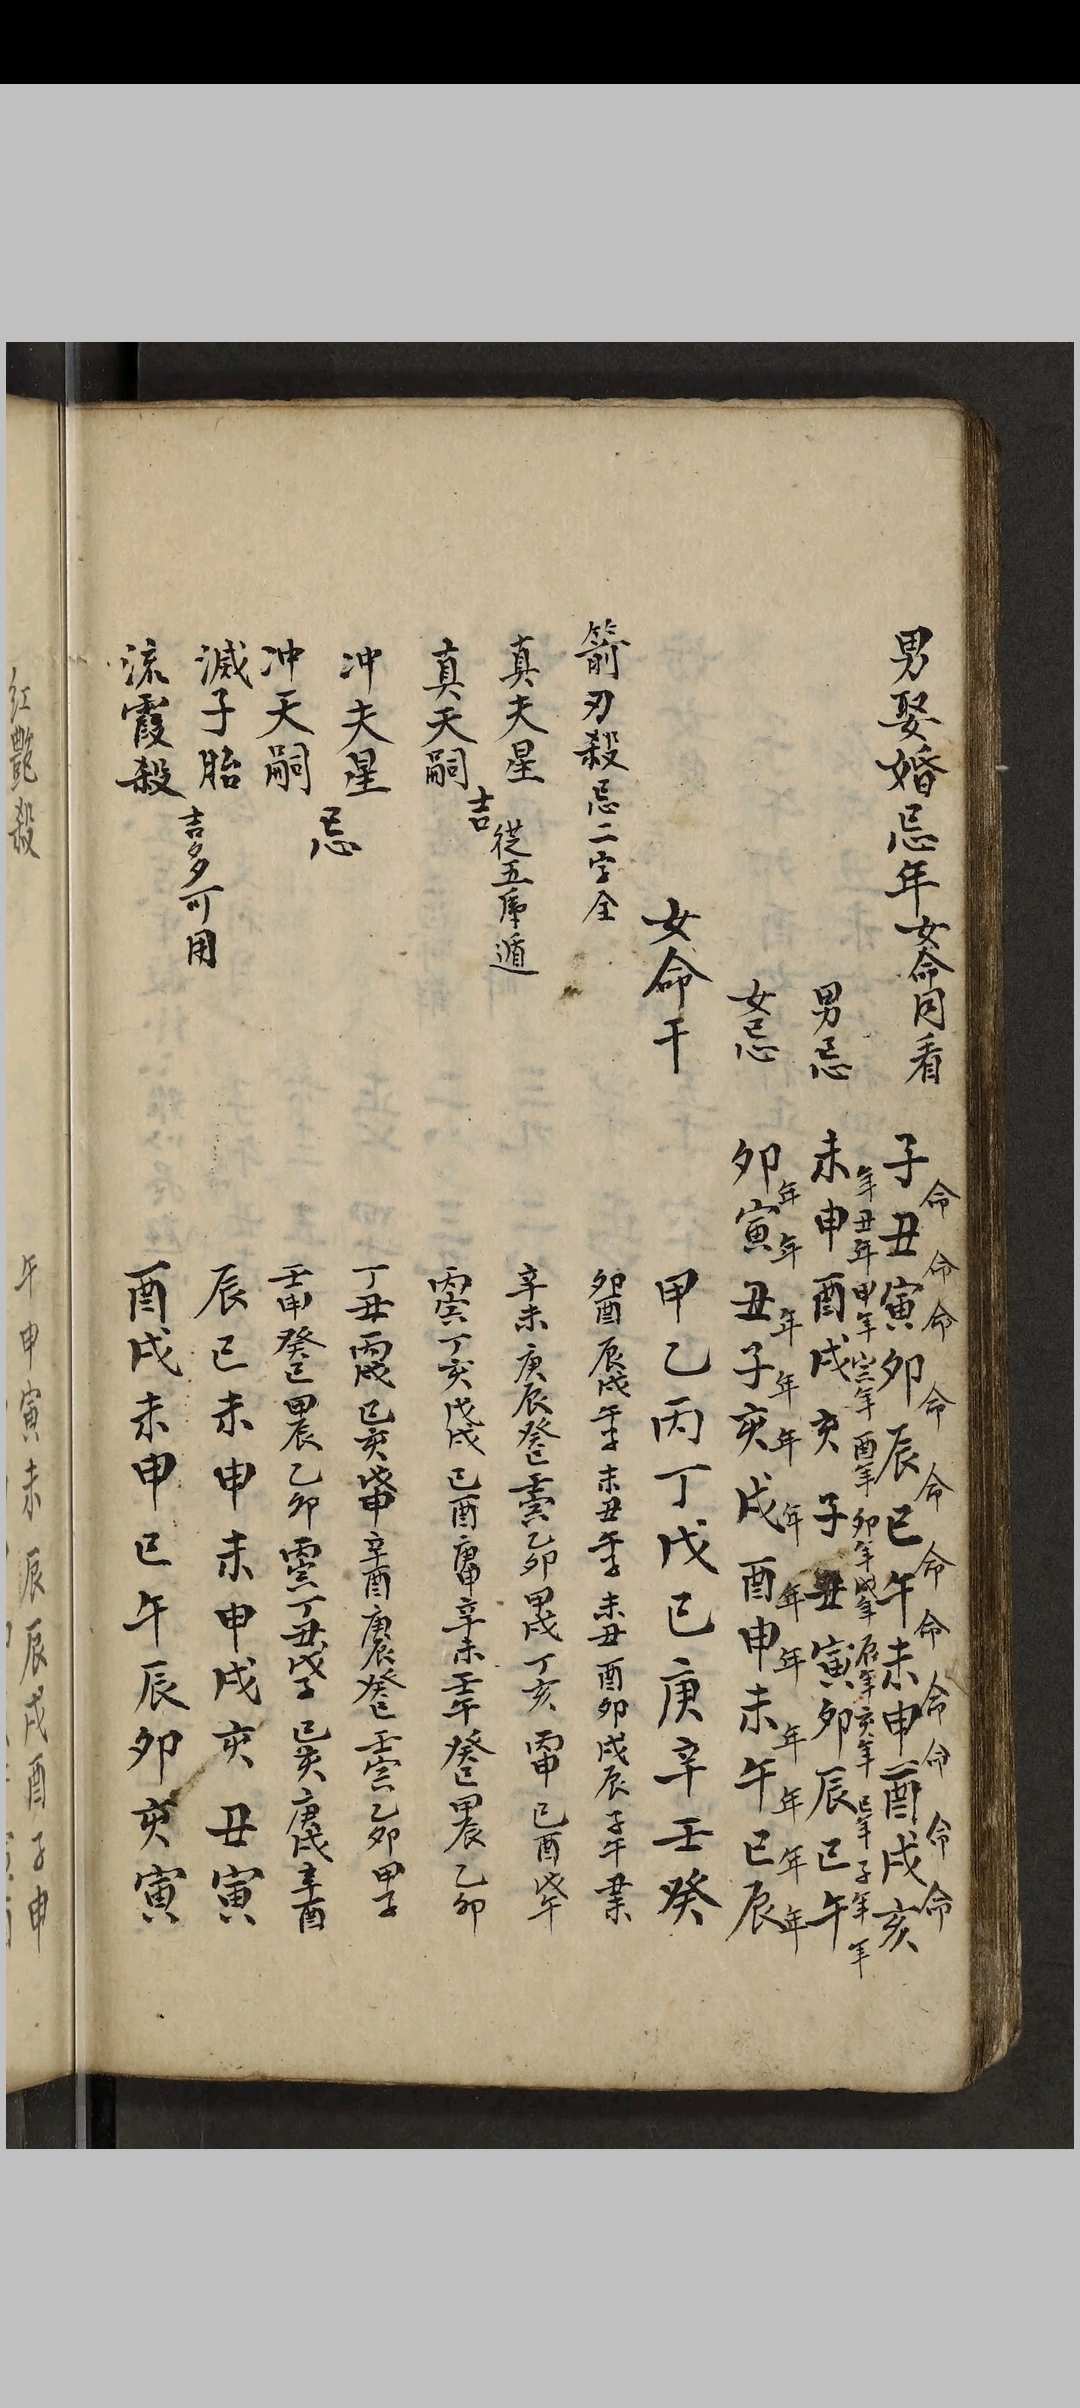 男娶婚忌年 女命同看 子命丑命寅命卯命辰命巳命午命未命申命酉命戌命亥命
年丑年申年寅年酉年卯年戌年辰年亥年巳年子年年
男忌 未申酉戌亥子丑寅卯辰巳午
女忌 卯年寅年丑年子年亥年戌年酉年申年未年午年巳年辰年
女命干 甲乙丙丁戊己庚辛壬癸
箭刃殺 忌二字全 卯酉 辰戌 午子 未丑 午子 未丑 酉卯 戌辰 子午 丑未
真夫星 辛未 庚辰 癸巳 壬寅 乙卯 甲戌 丁亥 丙申 己酉 戊午
吉 從五虎遁
真天嗣 丙寅 丁亥 戊戌 己酉 庚申 辛未 壬午 癸巳 甲辰 乙卯
冲夫星 丁丑 丙戌 己亥 戊申 辛酉 庚辰 癸巳 壬寅 乙卯 甲子
忌
冲天嗣 壬申 癸巳 甲辰 乙卯 丙寅 丁丑 戊子 己亥 庚戌 辛酉
滅子胎 辰巳未申未申戌亥丑寅
吉多可用
流霞殺 酉戌未申巳午辰卯亥寅
紅艷殺 午申寅未辰辰戌酉子申